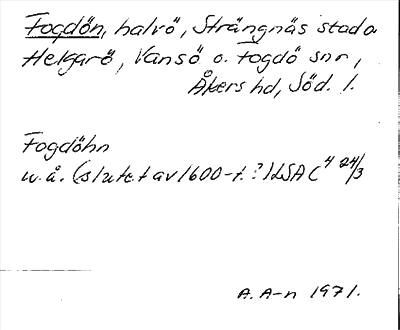 Fogdön, halvö, Strängnäs stad o
Helgarö, Vansö o. Fogdö snr,
Åkers hd, Söd. l.
Fogdöhn
u.å. (slutet av 1600-t.?) LSA C 4 24/3
A. A-n 1971.